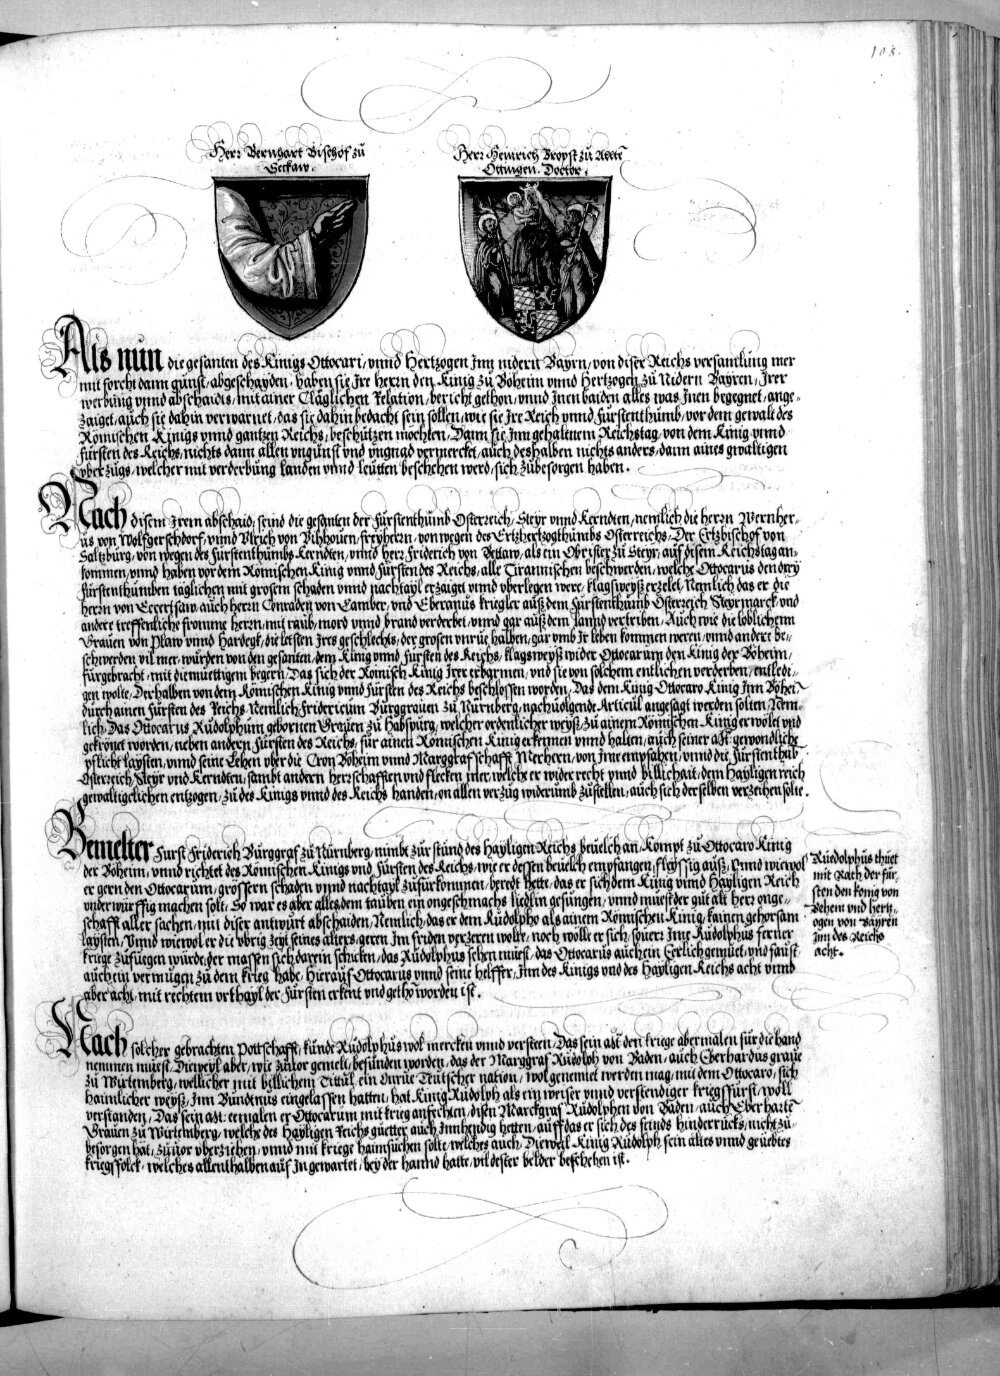 105.
Herr Bernhart Bischof zu
Seckaw.
Herr Heinrich Bropst zu Allte
Ottingen. Doctor.
Als nun die gesanten des Künigs Ottocari, vnnd Hertzogen Inn nidern Bayrn, von diser Reichs versamlung mer
mit forcht dann gunst, abgeschayden, haben sie Ire herrn den Künig zu Boheim vnnd Hertzogen zu Nidern Bayren, Irer
werbung vnnd abschaidts, mit ainer Cläglichen Relation, bericht gethon, vnnd Inen baiden alles was Inen begegnet, ange-
zaiget, auch sie dahin verwarnet, das sie dahin bedacht sein sollen, wie sie Ire Reich vnnd Fürstenthümb, vor dem gewalt des
Römischen Künigs vnnd gantzen Reichs, beschützen möchten, Dann sie Inn gehaltnem Reichstag, von dem Künig vnnd
Fürsten des Reichs, nichts dann allen vngunst vnd vngnad vermercket, auch deshalben nichts anders, dann aines gwaltigen
vberzugs, welcher mit verderbung landen vnnd leütten beschehen werd, sich zubesorgen haben.
Nach disem Irem abschaid, seind die gesanten der Fürstenthümb Osterreich, Steyr vnnd Kerndten, nemlich die herrn Wernher-
us von Wolfgerschdorf, vnnd Vlrich von Vihhouen, freyherrn, von wegen des Ertzhertzogthümbs Osterreichs, Der Ertzbischof von
Saltzburg, von wegen des Fürstenthümbs Kerndten, vnnd herr Friderich von Petlaw, als ein Obrister zu Steyr, auf disem Reichstag an-
kommen, vnnd haben vor dem Römischen Künig vnnd Fürsten des Reichs, alle Tirannischen beschwerden, welche Ottocarus den drey
Fürstenthümben täglichen mit grosem schaden vnnd nachtayl erzaiget vnnd vberlegen were, klagsweyß erzelet, Nemlich das er die
herrn von auch herrn Conraden von Camber, vnd Eberanus kriegler auß dem Fürstenthümb Osterreich Steyrmarck, vnd
andere treffenliche fromme herrn, mit raub, mord vnnd brand verderbet, vnnd gar auß dem Lannd vertriben, Auch wie die loblichenn
Grauen von Plaw vnnd Hardegk, die letsten Ires geschlechts, der grosen vnrüe halben, gar vmb Ir leben kommen weren, vnnd andere be-
schwerden vil mer, würden von den gesanten, dem Künig vnnd Fürsten des Reichs, klagsweyß wider Ottocarum den Künig der Böheim,
fürgebracht, mit diemuettigem begern, Das sich der Römisch Künig Irer erbarmen, vnd sie von solchem entlichen verderben, entledi-
gen wolte, Derhalben von dem Römischen Künig vnnd Fürsten des Reichs beschlossen worden, Das dem Künig Ottocaro Künig Inn Böhei-
durch ainen Fürsten des Reichs, Nemlich Fridericum Burggrauen zu Nürnberg, nachuolgende Articül angesagt werden solten, Nem-
lich, Das Ottocarus Rudolphum gebornen Grauen zu Habspürg, welcher ordenlicher weyß, zu ainem Römischen Künig erwölet vnd
gekrönet worden, neben andern Fürsten des Reichs, für ainen Römischen Künig erkennen vnnd halten, auch seiner alt gewondliche
pflicht laysten, vnnd seine Lehen vber die Cron Boheim vnnd Marggrafschafft Merhern, von Ime empfahen, vnnd die Fürstenthüb,
Osterreich, Steyr vnd Kerndten, sambt andern herrschafften vnd flecken mer, welche er wider recht vnnd billichait, dem Hayligen reich
gewaltigelichen entzogen, zu des Künigs vnnd des Reichs handen, on allen verzüg widerumb züstellen, auch sich derselben verzeihen solte.
Bemelter Fürst Friderich Burggraf zu Nürnberg, nimbt zur stund des Hayligen Reichs beuelch an, Kompt zu Ottocaro Künig
der Böheim, vnnd richtet des Römischen Künigs vnd Fürsten des Reichs, wie er dessen beuelch empfangen, fleyssig auß, Vnnd wiewol
er gern den Ottocarum, grössern schaden vnnd nachtayl zufürkommen, beredt hette, das er sich dem Künig vnnd Hayligen Reich
vnderwürffig machen solt, So war es aber alles dem tauben ein ongeschmachs liedlin gesungen, vnnd müest der güt alt herr onge-
schafft aller sachen, mit diser antwurt abschaiden, Nemlich, das er dem Rudolpho als ainem Römischen Künig, kainen gehorsam
laysten, Vnnd wiewol er die vbrig zeyt seines alters, geren Im friden verzeren wolt, noch wolle er sich, souerr Ime Rudolphus ferner
kriege zufuegen würde, der massen sich darein schicken, das Rudolphus sehen müest, das Ottocarus auch ein Eerlich gemüet, vnd faüst,
auch ein vermügen zu dem krieg habe, Hierauf Ottocarus vnnd seine helffer, Inn des Künigs vnd des Hayligen Reichs acht vnnd
aber acht, mit rechtem vrthayl der Fürsten erkent vnd gethon worden ist.
Rüedolphus thuet
mit Rath der für-
sten den konig von
Behem vnd hertz-
ogen von Bayren
Inn des Reichs
acht.
Nach solcher gebrachten Pottschafft, künde Rudolphus wol mercken vnnd versteen, Das sein alt den kriege abermalen für die hand
nemmen müest, Dieweyl aber, wie züuor gemelt, befunden worden, das der Marggraf Rudolph von Baden, auch Eberhardus graue
zu Wirtemberg, wellicher mit billichem Tittül, ein Vnrüe Teütscher nation, wol genennet werden mag, mit dem Ottocaro, sich
haimlicher weyß, Inn Bündtnüs eingelassen hatten, hat Künig Rudolph als ein weiser vnnd verstendiger kriegsfürst, woll
verstanden, Das sein alt: ee malen er Ottocarum mit krieg anfechten, disen Marckgraf Rudolphen von Baden, auch Eberharte
Grauen zu Wirtemberg, welche des Hayligen Reichs güetter auch Innhendig hetten, auff das er sich des feinds hinderrucks, nicht zu-
besorgen hat, züuor vberziehen, vnnd mit kriege haimsüchen solte, welches auch, Dieweil Künig Rudolph sein altes vnnd geüebtes
kriegsfolck, welches allenthalben auf In gewartet, bey der hannd hatte, vil dester belder beschehen ist.